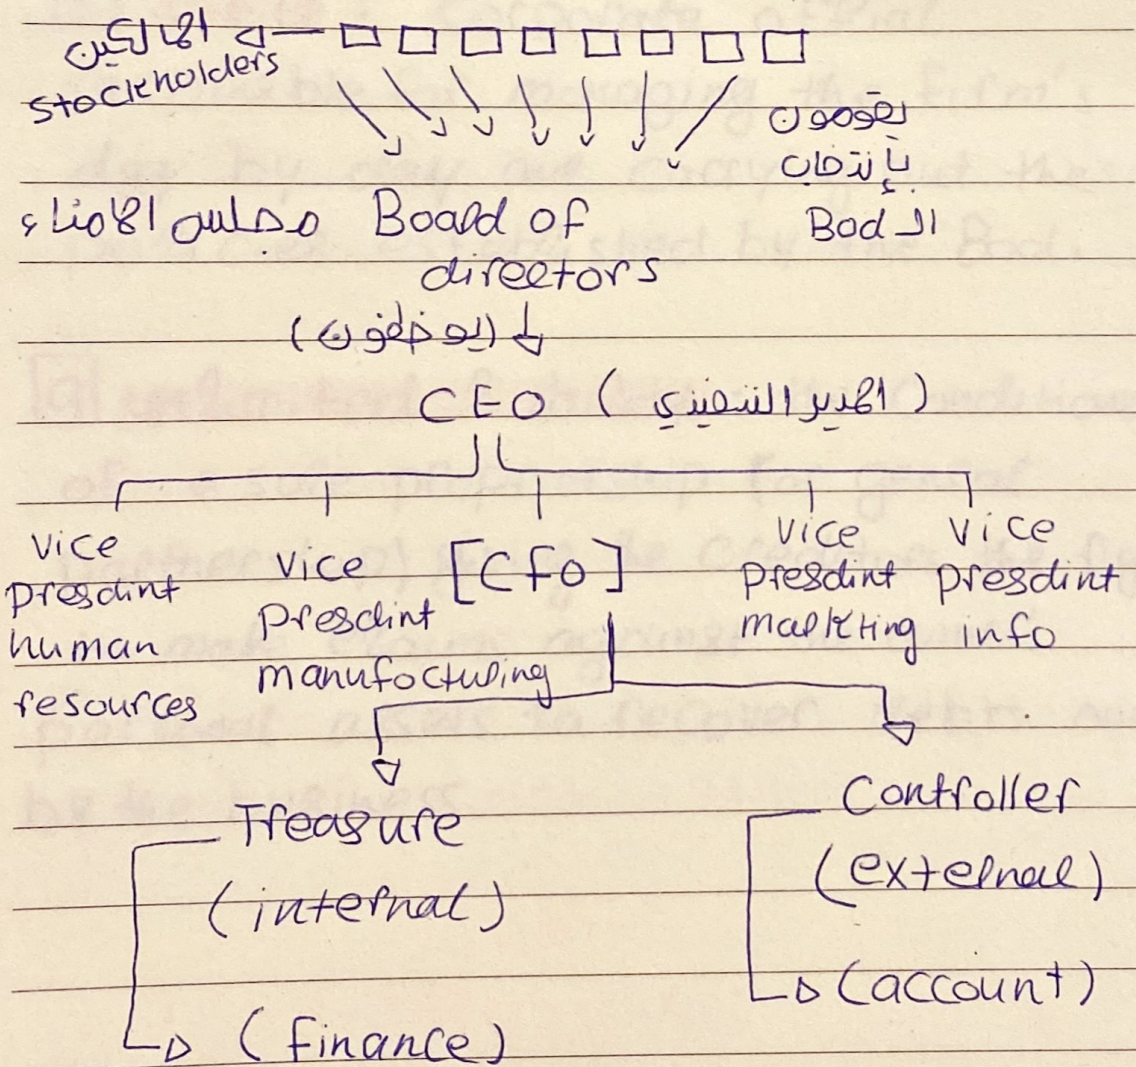 المالكين
Stockholders
يقومون
بإنتخاب
ال Bod
مجلس الامناء Board of
directors
(يوظفون)
CEO (المدير التنفيذي)
vice
presdint
human
resources
vice
presdint
manufocturing
[CFO]
vice
presdint
markting
vice
presdint
info
Treasure
(internal)
(finance)
Controller
(external)
(account)